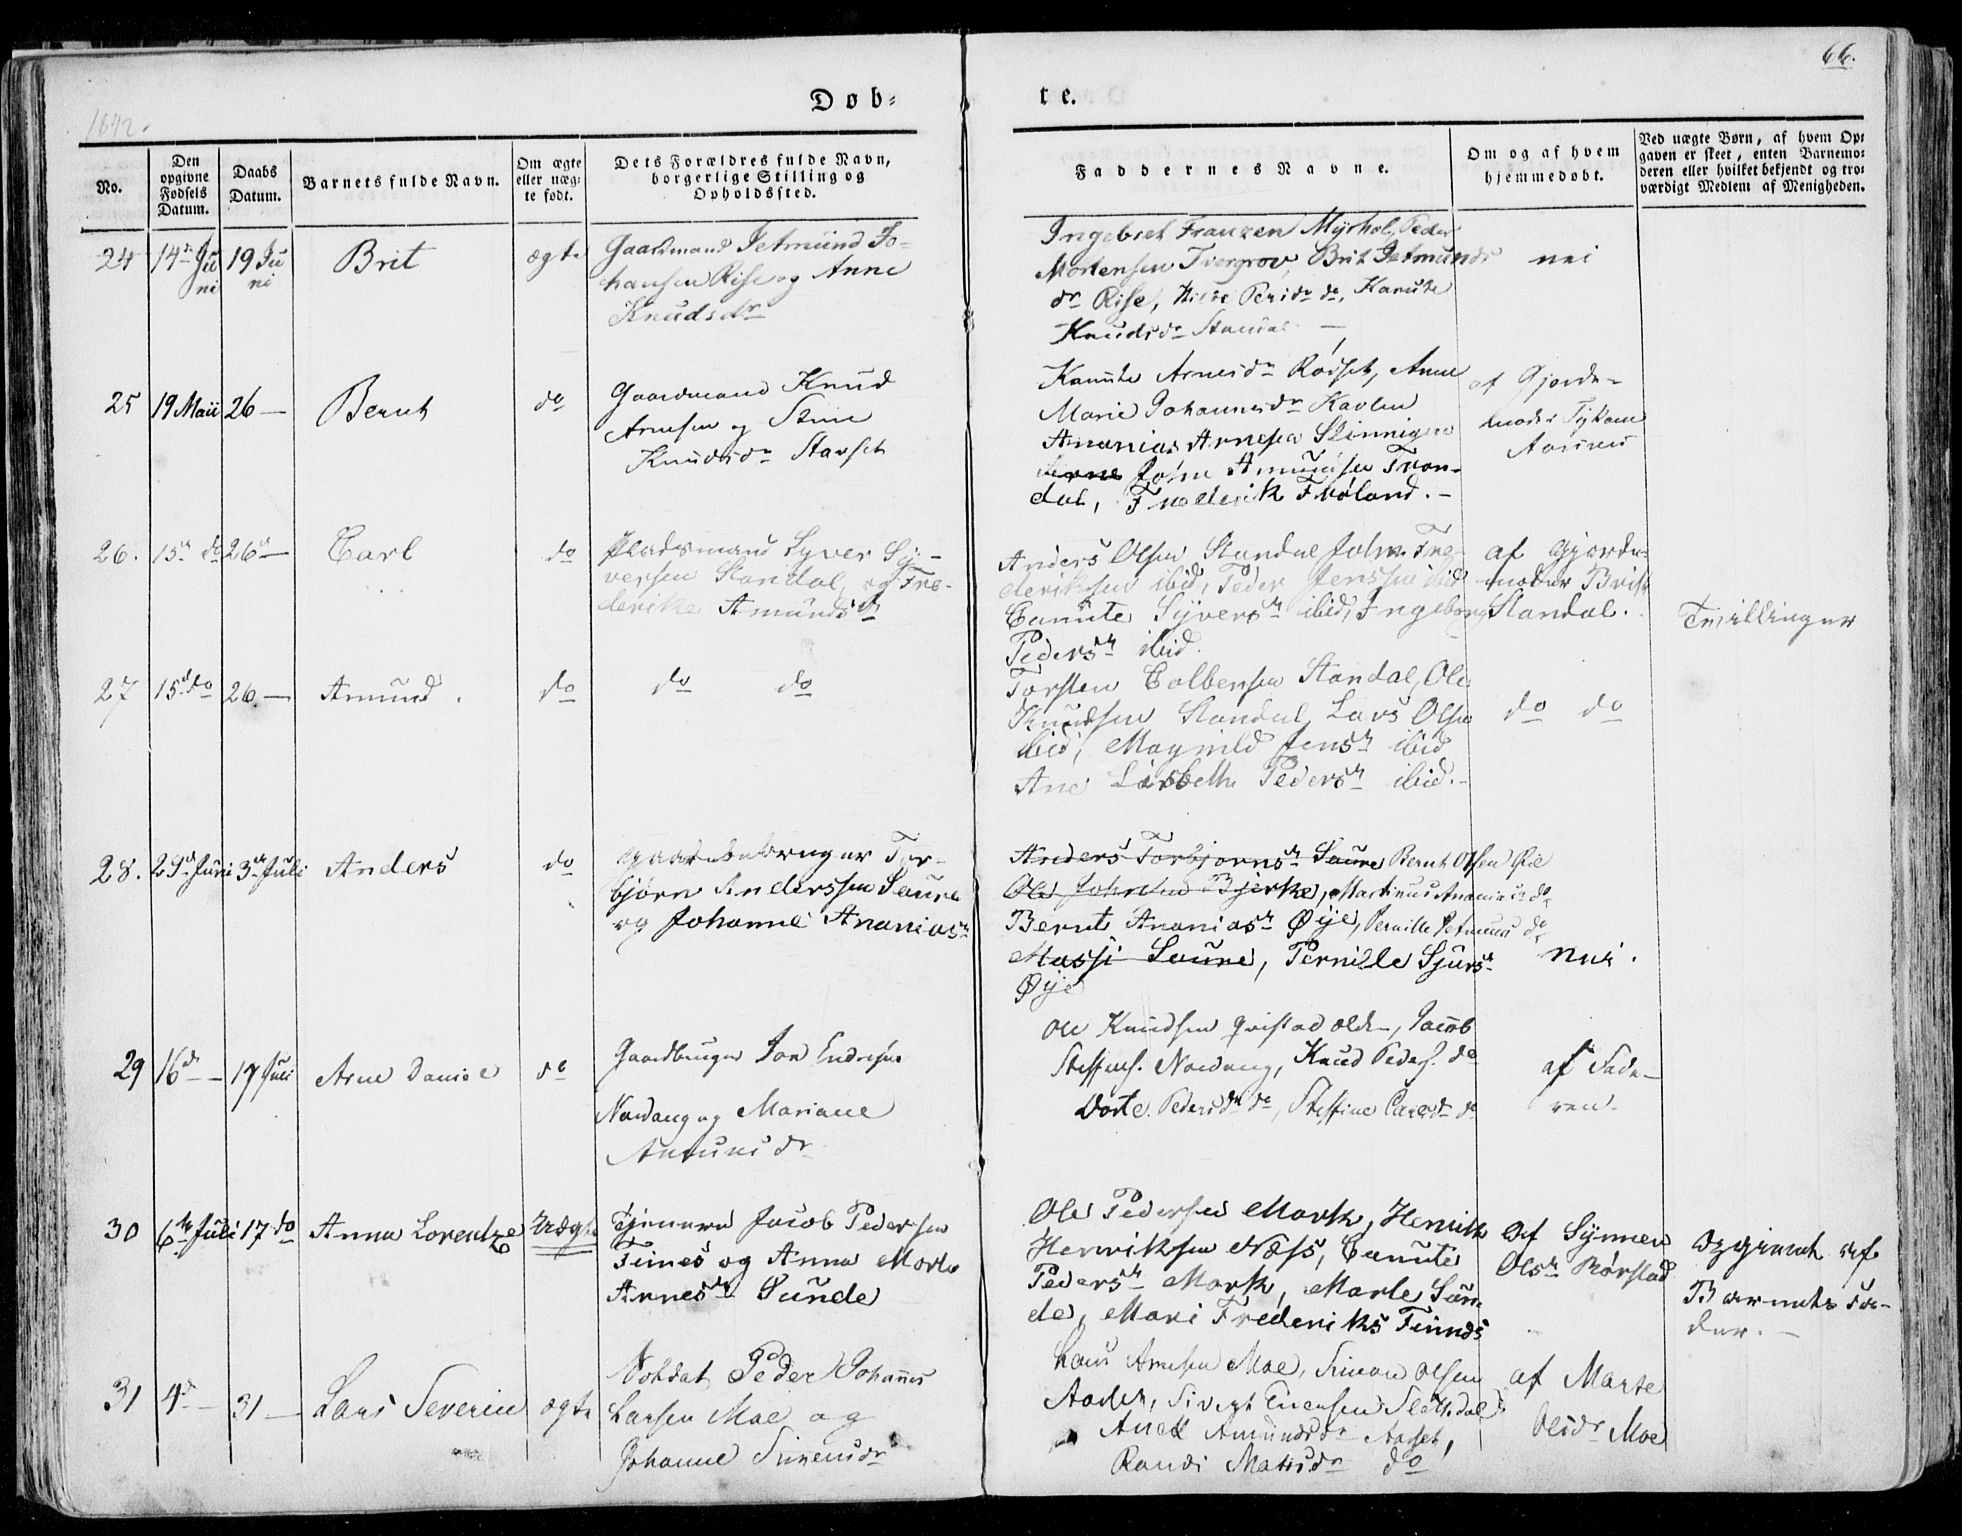 66.
Døb-
te.
1842.
No.
Den
opgivne
Fødsels
Datum.
Daabs
Datum.
Barnets fulde Navn.
Om ægte
eller uæg-
te født.
Dets Forældres fulde Navn,
borgerlige Stilling og
Opholdssted.
Faddernes Navne.
Om og af hvem
hjemmedøbt.
Ved uægte Børn, af hvem Op-
gaven er skeet, enten Barnemo-
deren eller hvilket bekjendt og tro-
værdigt Medlem af Menigheden.
24
14de Ju
ni
19 Ju
ni
Brit
ægte
Gaardmand Petmund Jo-
hansen Rise og Anne
Knudsdr
Ingebret Franzen Myrhol, Peder
Mortensen Tvergrov, Brit Petmunds
dr Rise, Persdr do, Kanute
Knudsdr Standal
nei
25
19 Maii
26 —
Bernt
do
Gaardmand Knud
Arnesen og
Knudsdr Stavset
Kanute Arnesdr Rødset, Anne
Marie Johannesdr Kavlen
Ananias Arnesen
Arne John Amundsen Tron-
dal, Frederik Frøland. -
af Gjorde-
moder
26.
15de do
26de —
Carl
do
Pladsmand Syver Sy-
versen Standal, og Fre-
derike Amundsdr
Anders Olsen Standal John Fre-
deriksen ibid, Peder Jenssen ibid
Canute Syversdr ibid, Ingeborg
Pedersdr ibid.
af Gjorde-
moder Brit
Standal.
Tvillinger
27
15de do
26 —
Amund.
do
do do
Torsten Colbensen Standal, Ole
Knudsen Standal, Lars Olsen
ibid, Magnild Jensdr ibid
Ane Lisbeth Pedersdr ibid. -
do do
28.
29de Juni
3de Juli
Anders
do
Gaardebebruger Tor-
bjørn Anderssen Saure
og Johanne Ananiasdr
Anders Torbjørnsdr Saure Bernt Olsen Øie
Ole Johnsen Bjerke, Martinus Ananias do
Bernt Ananiasdr Øye, Pernille Petmunds do
Massi Saure, Pernille Sjursdr
Øye
nei.
29
16de —
17 Juli
Arne Daniel
do
Gaardbruger Jon Endresen
Nordang og Mariane
Amundsdr
Ole Knudsen Qvistad, Jacob
Steffens. Nordang, Knud Peders. do
Dorte Pedersdr do, Steffine do
af Fade-
ren.
30
6te Juli
17 do
Anna Lorentze
Uægte
Tjenere Jacob Pedersen
Fines og Anna Marte
Arnesdr Sunde
Ole Pedersen Mork, Henrik
Henriksen Næss, Canute
Pedersdr Mork, Marte Sun-
de, Mari Frederiks Finnds
Af Synnev
Olsdr Rørstad
Opgivnet af
Barnets Fa-
der. -
31
4de —
31 —
Lars Severin
ægte
Soldat Peder Johannes
Larsen Moe og
Johanne Simensdr
Hans Arnesen Moe, Simon Olsen
Aaset, Sivert
Anne Amundsdr Aaset,
Randi Matisdr do
af Marte
Olsdr Moe